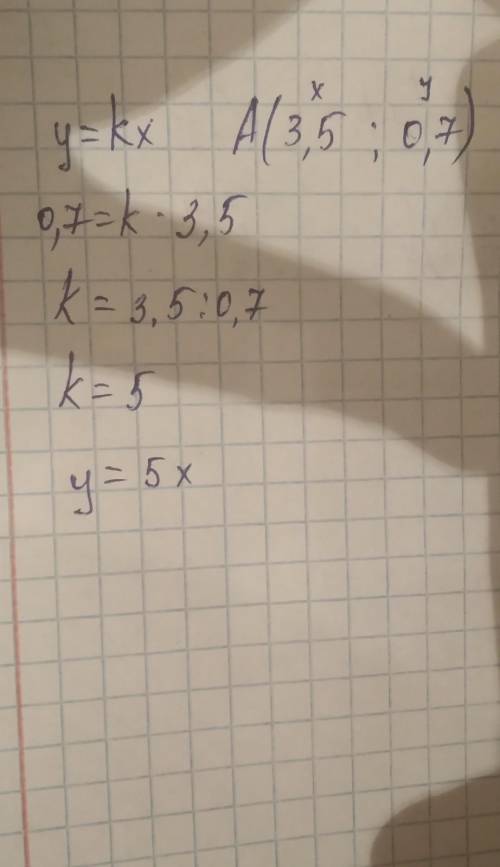 x y
y=kx A(3,5 ; 0,7)
0,7=k · 3,5
k = 3,5:0,7
k = 5
y = 5x